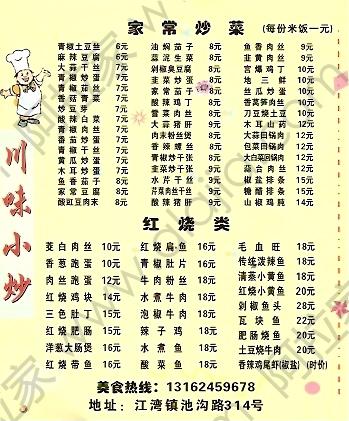 家常炒菜 (每份米饭一元)
青椒土豆丝 6元 油焖茄子 8元 鱼香肉丝 9元
麻辣豆腐 6元 蒜泥生菜 8元 韭黄肉丝 9元
大蒜干丝 7元 剁椒臭豆腐 8元 宫爆鸡丁 10元
青椒炒蛋 7元 韭菜炒蛋 8元 地三鲜 10元
青椒茄子 7元 家常茄子 8元 丝瓜炒蛋 10元
香菇青菜 7元 酸辣鸡丁 8元 香莴笋肉丝 10元
炒豆芽 7元 雪菜肉丝 8元 刀豆烧土豆 10元
酸辣白菜 7元 大蒜猪肝 9元 木耳山药 12元
青椒肉丝 8元 肉末粉丝煲 9元 大蒜回锅肉 12元
番茄炒蛋 8元 香辣螺丝 9元 包菜回锅肉 12元
青椒干丝 8元 青椒炒千张 9元 大白菜回锅肉 12元
黄瓜炒蛋 8元 韭菜炒千张 9元 蒜台肉丝 12元
木耳炒蛋 8元 水芹干丝 9元 椒盐排条 15元
鱼香茄子 8元 芹菜肉丝干丝 9元 糖醋排条 15元
酸豇豆肉末 8元 酸辣猪肝 9元 山椒鸡肫 14元
川味小炒
红烧类
茭白肉丝 10元 红烧扁鱼 16元 毛血旺 18元
香葱跑蛋 10元 青椒肚片 16元 传统泼辣鱼 18元
肉丝跑蛋 12元 牛肉粉丝 18元 清蒸小黄鱼 20元
红烧鸡块 14元 水煮牛肉 18元 红烧小黄鱼 20元
三色肚丁 15元 泡椒牛肉 18元 剁椒鱼头 28元
红烧肥肠 15元 辣子鸡 18元 瓦块鱼 22元
洋葱大肠煲 16元 水煮鱼 18元 肥肠烧鱼 20元
红烧带鱼 16元 酸菜鱼 18元 土豆烧牛肉 20元
香辣鸡尾虾(椒盐) (时价)
美食热线：13162459678
地址：江湾镇池沟路314号